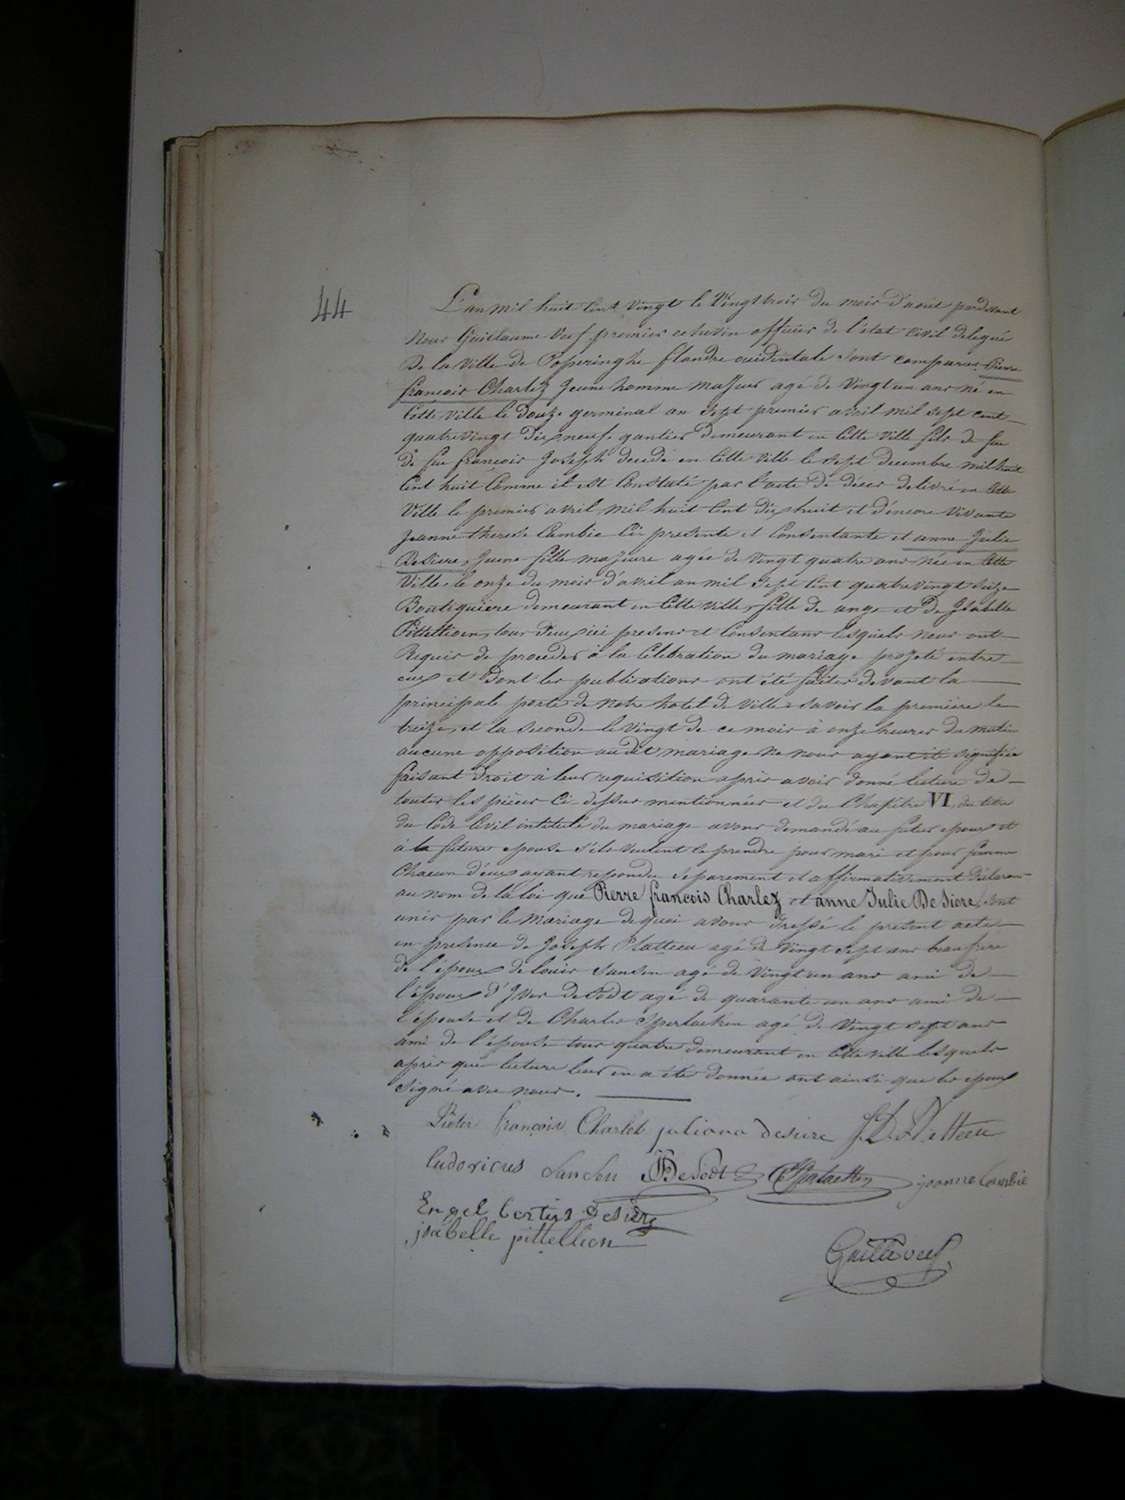 44
L'an mil huit cent vingt le vingt trois du mois d'aout pardevant
nous Guillaume Veys premier echevin officier de l'etat civil delegué
De la ville de Poperinghe flandre occidentale sont comparus Pierre
françois Charlez Jeune homme majeur agé de vingt un ans né en
Cette ville le douze germinal an sept premier avril mil sept cent
quatre vingt dix neuf gantier demeurant en cette ville fils de feu
de feu françois Joseph decedé en cette ville le sept decembre mil huit
Cent huit Comme il est Constaté par l'acte de décés delivré en cette
Ville le premier avril mil huit cent dix huit et d'encore vivante
Jeanne therese Cambie Cij presente et Consentante et anne Julie
DeSiere, Jeune fille majeure agée de vingt quatre ans née en cette
Ville le onze du mois d'avril an mil sept cent quatre vingt seize
Boutiquiere demeurant en cette ville, fille de ange et de Isabelle
Pittellioen, tous deux ici presens et Consentans lesquels nous ont
Requis de proceder à la Celebration du mariage projeté entre
eux et dont les publications ont été faites devant la
principale porte de notre hotel de ville savoir la premiere le
treize et la seconde le vingt de ce mois à onze heures du matin
aucune opposition audit mariage ne nous ayant été signifiée
faisant droit à leur requisition apres avoir donné lecture de
toutes les pieces Ci-dessus mentionnées et du Chapitre VI du titre
du Code Civil intitulé du mariage avons demandé au futur epoux et
à la future epouse s'ils veulent se prendre pour mari et pour femme
Chacun d'eux ayant repondu separement et affirmativement declarons
au nom de la loi que Pierre françois Charlez et anne Julie DeSiere, sont
unis par le mariage de quoi avons dressé le present acte
en presence de Joseph Platteeu agé de vingt sept ans beaufrere
de l'époux de louis Sansen agé de vingt un ans ami de
l'époux d'Yves DeSodt agé de quarante un ans ami de
l'épouse et de Charles agé de vingt sept ans
ami de l'épouse tous quatre demeurant en cette ville lesquels
apres que lecture leur en a été donnée ont ainsi que les epoux
signé avec nous.
Pieter françois Charlet juliana desiere
ludovicus Sansen DeSodt joanne Cambie
Engel DeSiere
jsabelle pittellion